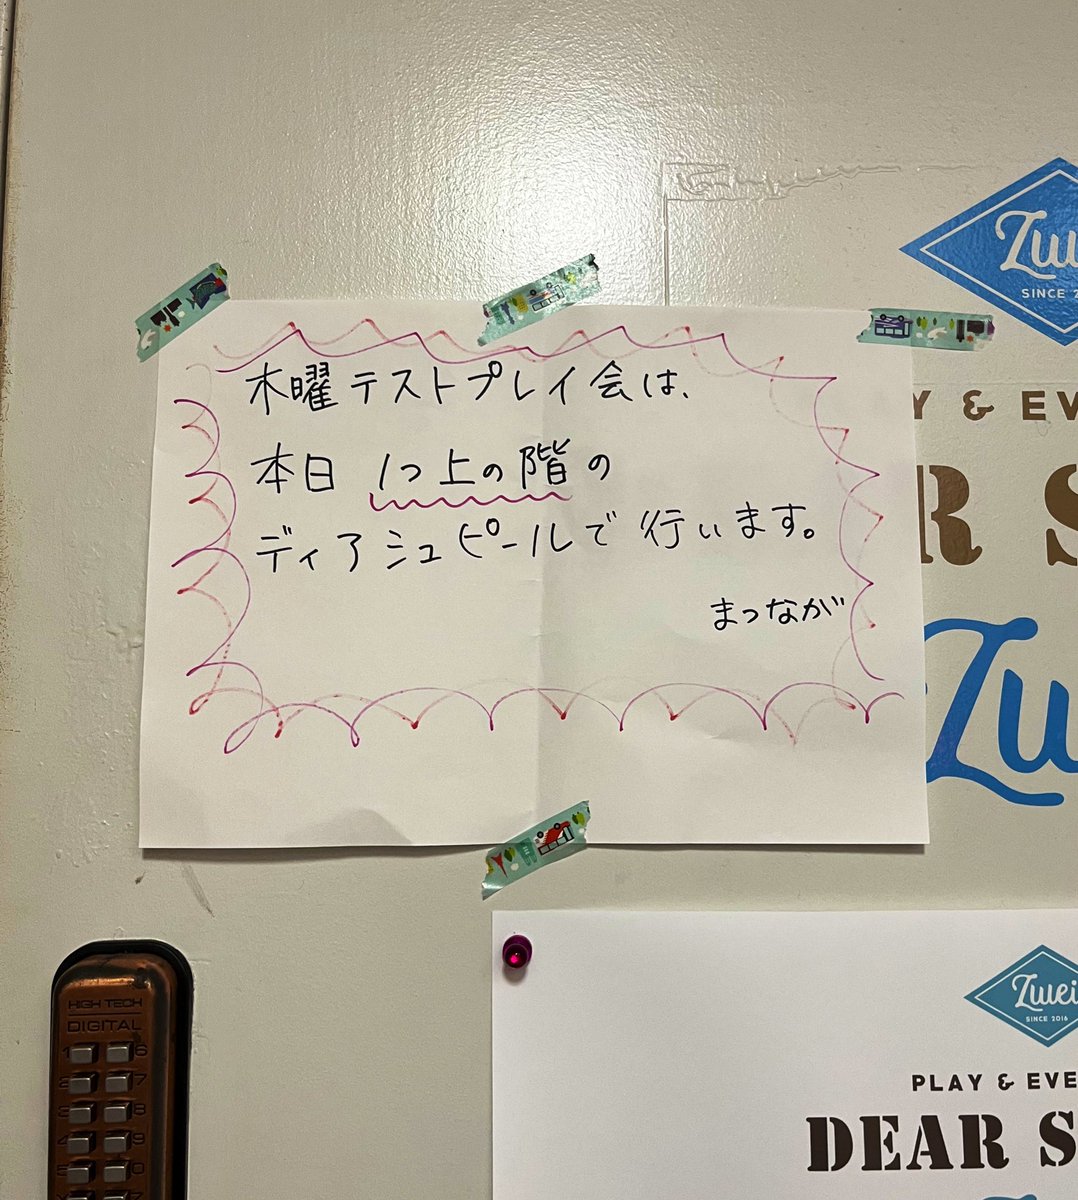 木曜テストプレイ会は、
本日 1つ上の階の
ディアシュピールで行います。
まつなが
SINCE 2
Y & EV
AR S
Zu
HIGH TECH
DIGITAL
1 6
2 7
3 8
4 9
5 0
Zwei
SINCE 2016
PLAY & EVE
DEAR S